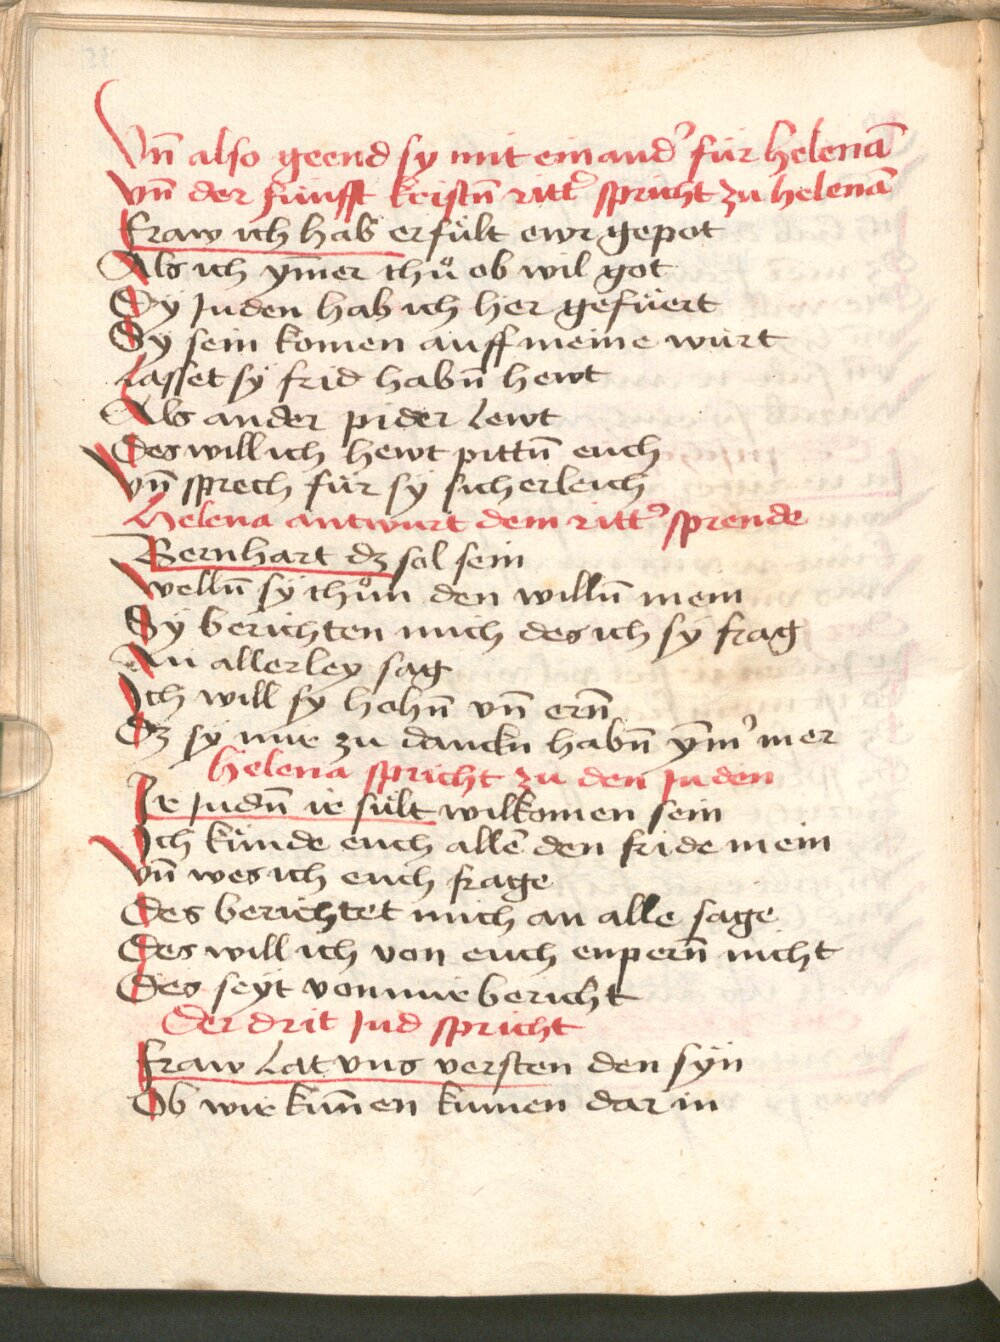 Vn̄ also geend sy mit einand᷑ für helenā
vn̄ der fünfft kristn̄ ritt᷑ spricht zu helenā
Fraw ich hab erfült ewr gepot
Als ich ym̄er thů ob wil got
Dy Juden hab ich her gefüert
Sy sein komen auff meine würt
Lasset sy frid habn̄ hewt
Als ander pider Lewt
Des will ich hewt pittn̄ euch
Vn̄ sprech für sy sicherleich
Helena antwurt dem ritt᷑ sprende
Bernhart dz sol sein
Welln̄ sy thůn den willn̄ mein
Sy berichten mich des ich sy frag
An allerley sag
Ich will sy hohn̄ vn̄ ern̄
Dz sy mir zu danckn habn̄ ym̄᷑ mer
helena spricht zu den Juden
Ir Judn̄ ir sült wilkomen sein
Ich künde euch allē den fride mein
Vn̄ wes ich euch frage
Des berichtet mich an alle sage
Des will ich von euch enpern̄ nicht
Des seyt von mir bericht
Der drit Jud spricht
Fraw Lat vns versten den syn
Ob wir kun̄en kumen dar in